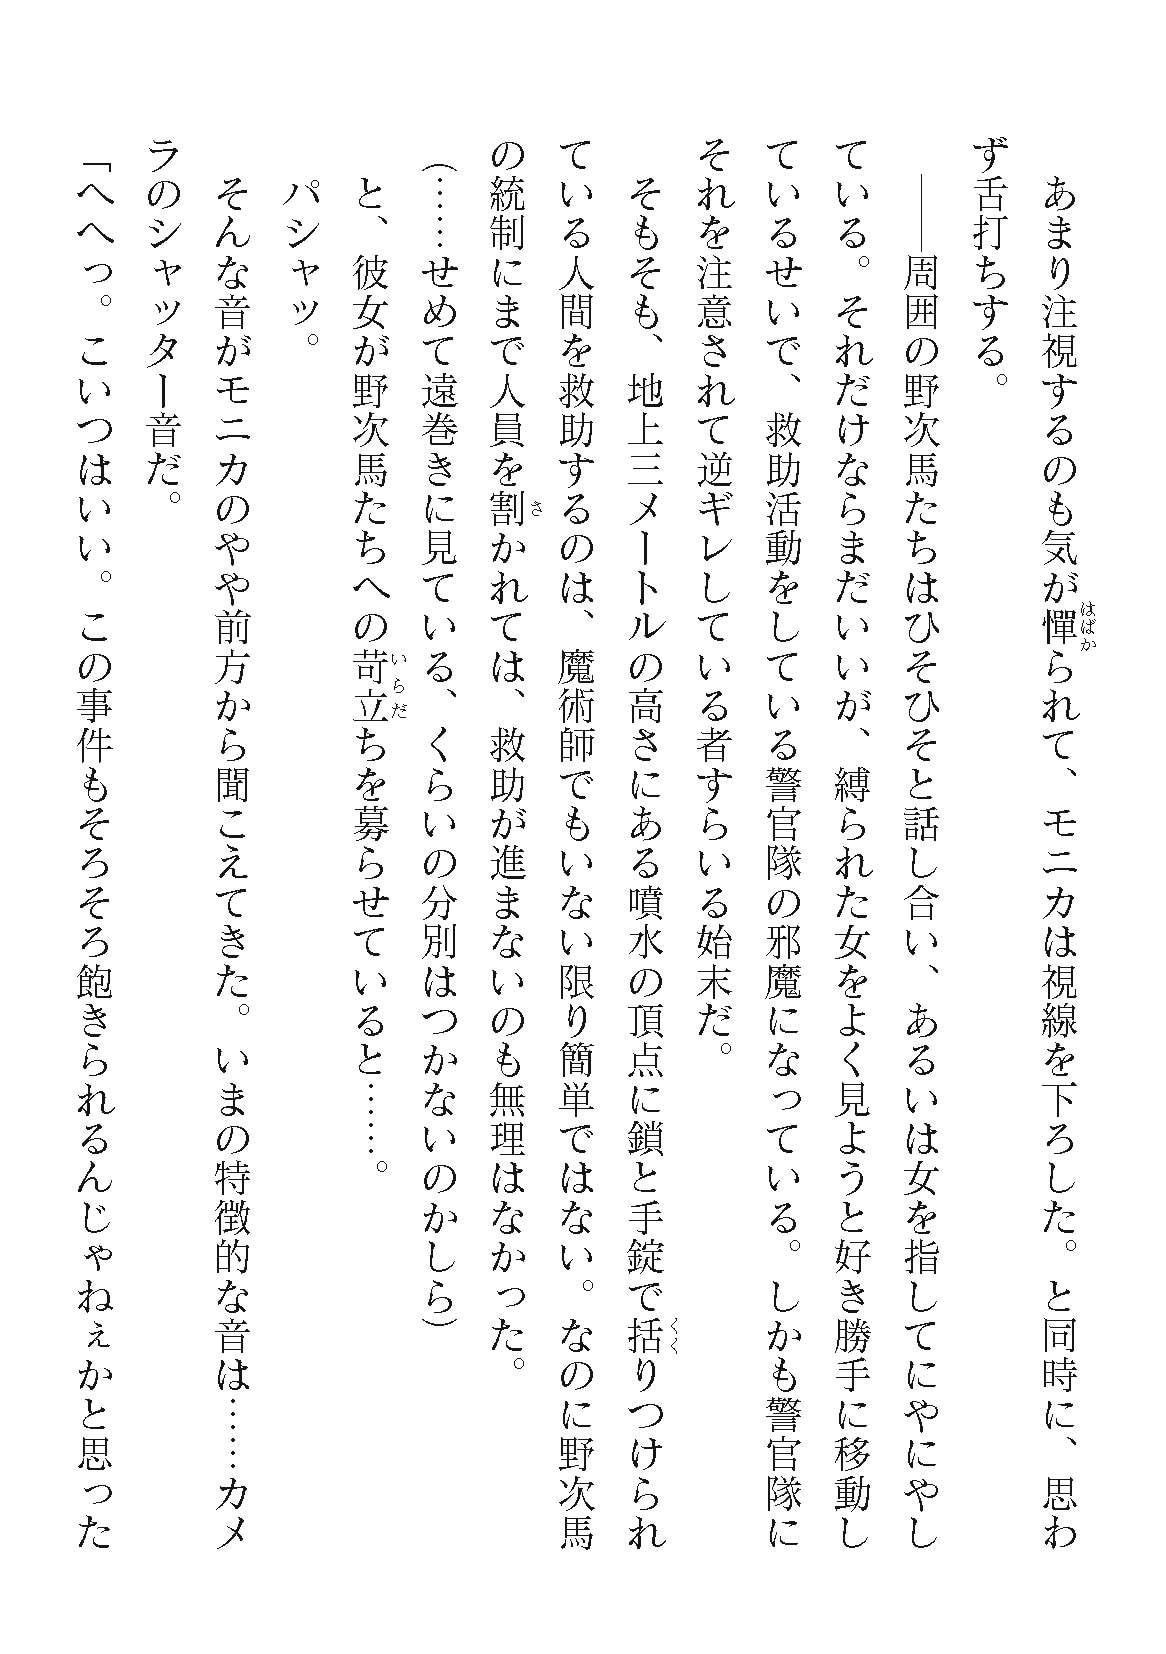 あまり注視するのも気が憚られて、モニカは視線を下ろした。と同時に、思わ
ず舌打ちする。
――周囲の野次馬たちはひそひそと話し合い、あるいは女を指してにやにやし
ている。それだけならまだいいが、縛られた女をよく見ようと好き勝手に移動し
ているせいで、救助活動をしている警官隊の邪魔になっている。しかも警官隊に
それを注意されて逆ギレしている者すらいる始末だ。
そもそも、地上三メートルの高さにある噴水の頂点に鎖と手錠で括りつけられ
ている人間を救助するのは、魔術師でもいない限り簡単ではない。なのに野次馬
の統制にまで人員を割かれては、救助が進まないのも無理はなかった。
（……せめて遠巻きに見ている、くらいの分別はつかないのかしら）
と、彼女が野次馬たちへの苛立ちを募らせていると……。
パシャッ。
そんな音がモニカのやや前方から聞こえてきた。いまの特徴的な音は……カメ
ラのシャッター音だ。
「へへっ。こいつはいい。この事件もそろそろ飽きられるんじゃねぇかと思った